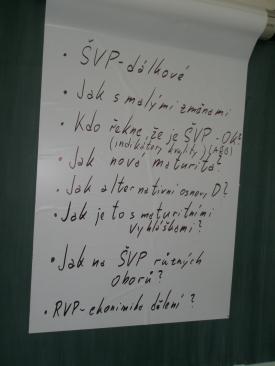 • ŠVP-dálkové
• Jak s malými změnami
• Kdo řekne, že je ŠVP - OK?
(indikátory kvality)
• Jak nová maturita?
• Jak alternativní osnovy D?
• Jak je to s maturitními
vyhláškami?
• Jak na ŠVP různých
oborů?
• RVP-ekonimika dělení?